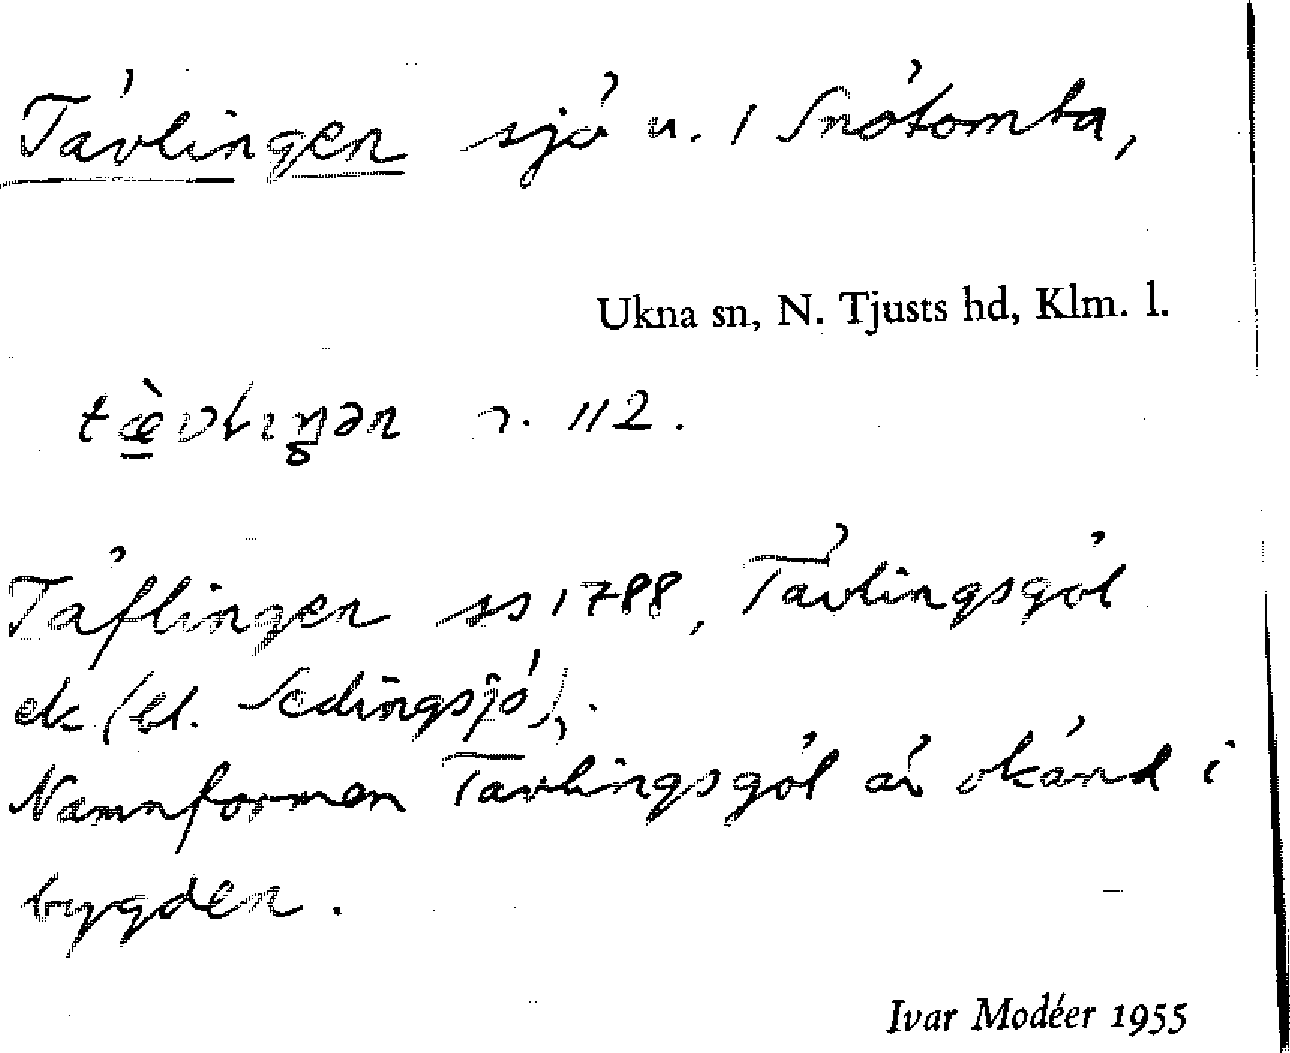 Tävlingen sjö u. 1 Snötomta,
Ukna sn, N. Tjusts hd, Klm. l.
tæ̀vlıŋən r. 112.
Täflingen ss 1788, Tävlingsgöl
ek (bl. Sedingsjö),
Namnformen Tävlingsgöl är okänd i
bygden.
Ivar Modéer 1955